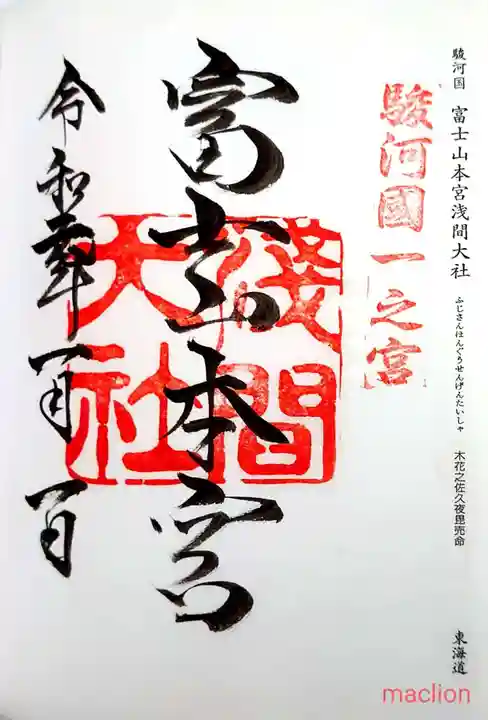 駿河国 富士山本宮浅間大社 ふじさんほんぐうせんげんたいしゃ 木花之佐久夜毘売命 東海道
駿河國一之宮
富士山本宮
淺間
大社
令和
maclion